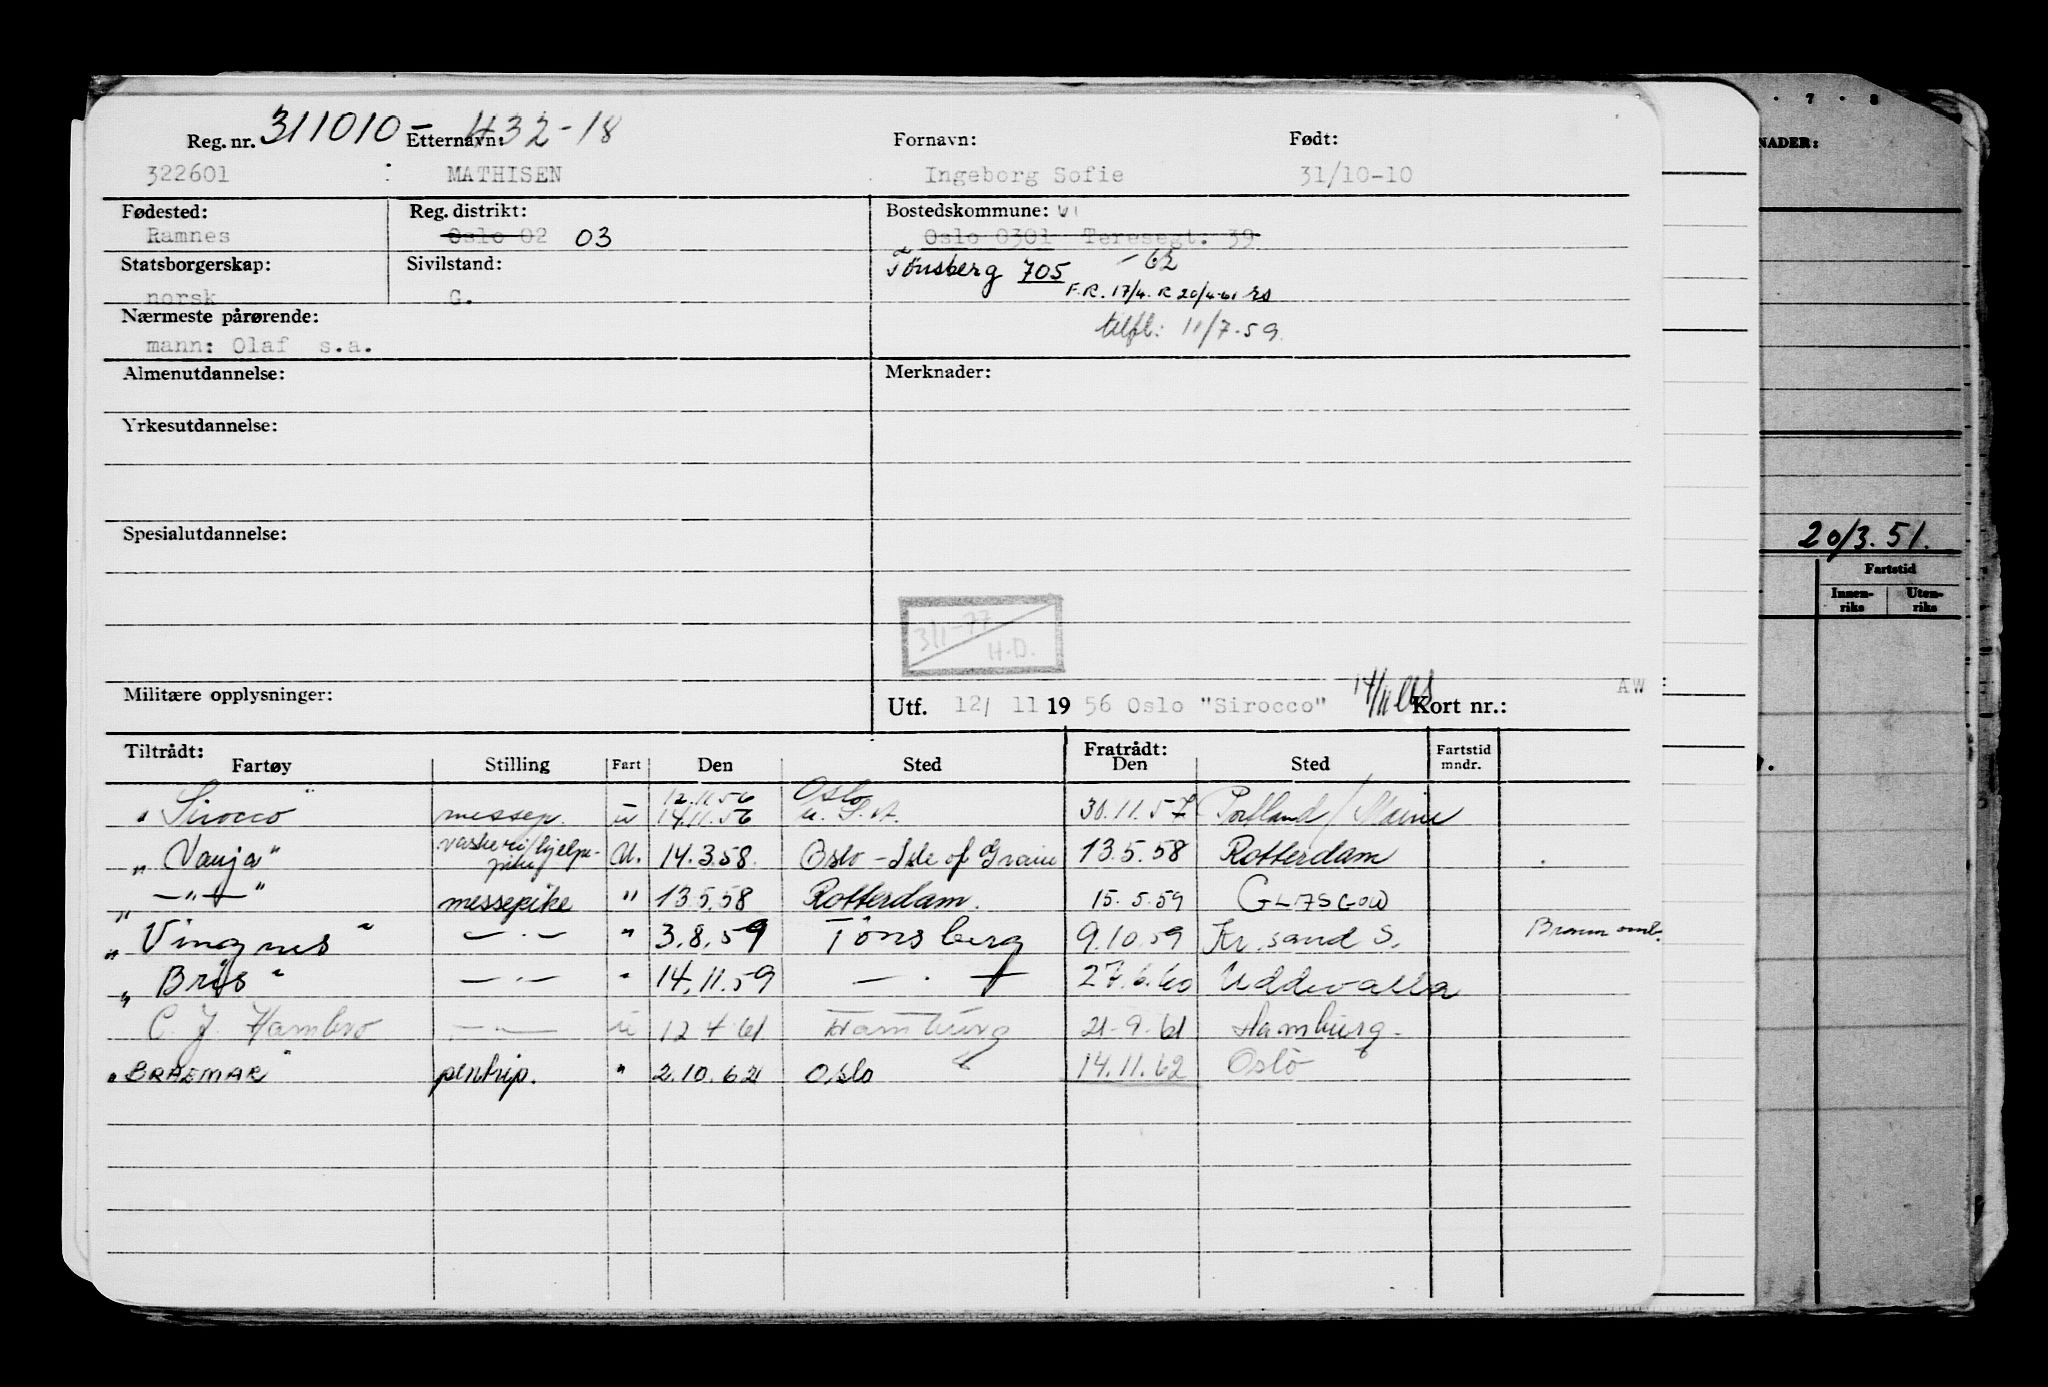 311010-43218
Reg. nr. Etternavn: Fornavn: Født:
322601 : MATHISEN Ingeborg Sofie 31/10-10
Fødested: Reg. distrikt: Bostedskommune:
Ramnes Oslo 02 03 Oslo 0301 Teresegt. 39
Statsborgerskap: Sivilstand: Tønsberg 705 - 62
norsk G. F.R. 17/4. R 20/4-61 rs
Nærmeste pårørende: tilfl: 11/7-59
mann: Olaf s.a.
Almenutdannelse: Merknader:
Yrkesutdannelse:
Spesialutdannelse:
3/1-77
H.D.
Militære opplysninger: Utf. 12/ 11 1956 Oslo "Sirocco" 14/11 Kort nr.: AW
Tiltrådt: Fratrådt: Fartstid
Fartøy Stilling Fart Den Sted Den Sted mndr.
12.11.56 Oslo
"Sirocco" messep. u 14.11.56 U.S.A. 30.11.57 Portland/Maine
"Vanja" vaskeri/hjelpe- U. 14.3.58. Oslo - Isle of Grain 13.5.58 Rotterdam
pike
" —"— " messepike " 13.5.58 Rotterdam. 15.5.59 GLASGOW
"Vingnes" — " — " 3.8.59 Tønsberg 9.10.59 Kr.sand S.
"Bris" — " — " 14.11.59 — " — 27.6.60 Uddevalla
C. J. Hambro — " — u 12.4.61 Hamburg 21-9-61 Hamburg.
"BRAEMAR" pentrip. " 2.10.62 Oslo 14.11.62 Oslo
7 · 8
NADER:
20/3.51.
Fartstid
Innen- Uten-
riks riks